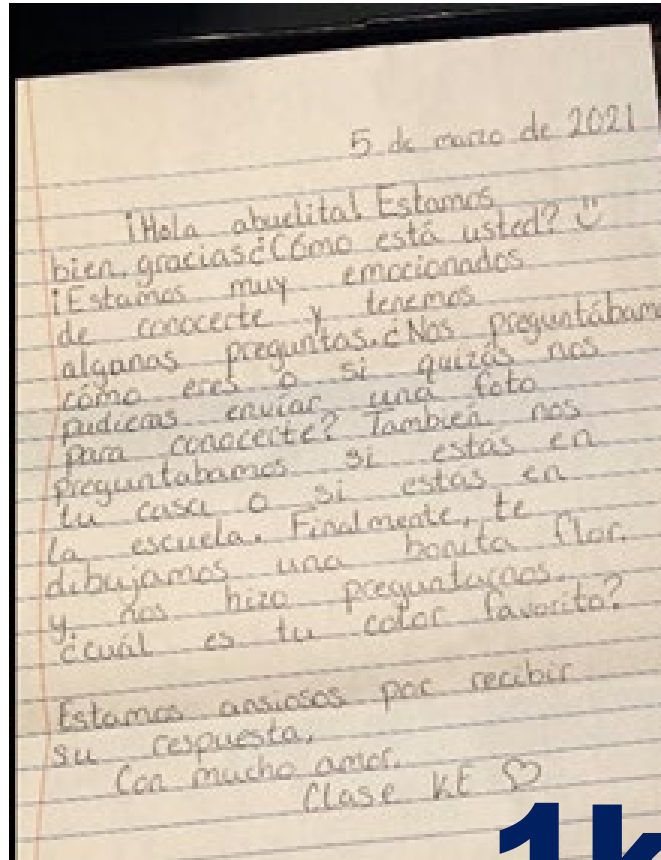 5 de marzo de 2021
¡Hola abuelita! Estamos
bien, gracias ¿Cómo está usted? ü
¡Estamos muy emocionados
de conocerte y tenemos
algunas preguntas. ¿Nos preguntábamo
cómo eres o si quizás nos
pudieras enviar una foto
para conocerte? También nos
preguntabamos si estas en
tu casa o si estas en
la escuela. Finalmente, te
dibujamos una bonita flor.
y nos hizo preguntarnos.
¿cuál es tu color favorito?
Estamos ansiosos por recibir
su respuesta,
Con mucho amor,
Clase KE ♡
1k